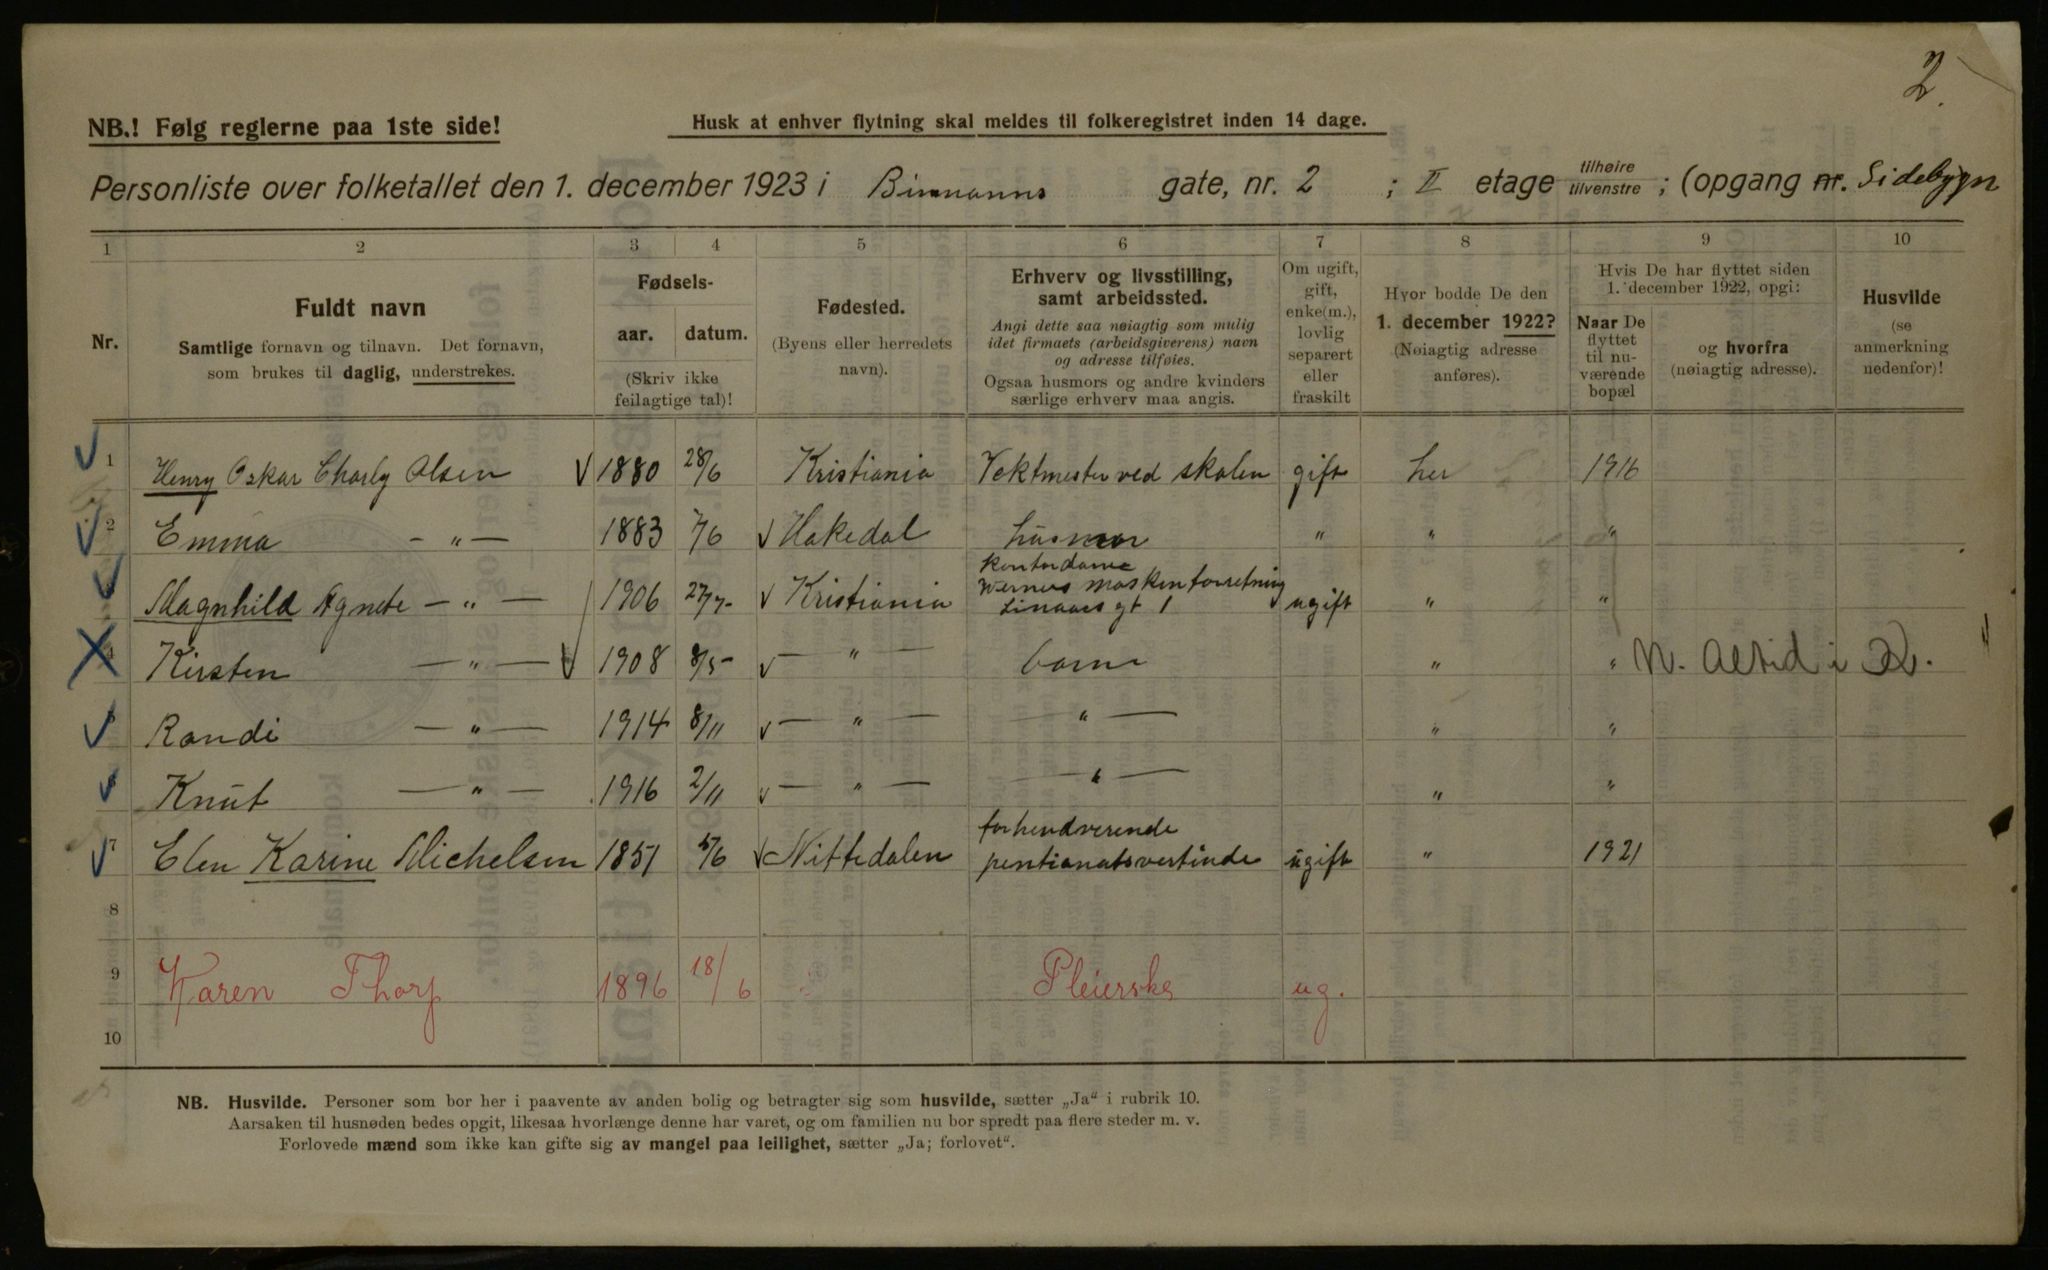 2.
NB.! Følg reglerne paa 1ste side!
Husk at enhver flytning skal meldes til folkeregistret inden 14 dage.
Personliste over folketallet den 1. december 1923 i Binmanns gate, nr. 2 ; II etage tilhøire tilvenstre ; (opgang nr. Sidebygn
1 2 3 4 5 6 7 8 9 10
Nr.
Fuldt navn
Samtlige fornavn og tilnavn. Det fornavn,
som brukes til daglig, understrekes.
Fødsels-
aar. datum.
(Skriv ikke
feilagtige tal)!
Fødested.
(Byens eller herredets
navn).
Erhverv og livsstilling,
samt arbeidssted.
Angi dette saa nøiagtig som mulig
idet firmaets (arbeidsgiverens) navn
og adresse tilføies.
Ogsaa husmors og andre kvinders
særlige erhverv maa angis.
Om ugift,
gift,
enke(m.),
lovlig
separert
eller
fraskilt
Hvor bodde De den
1. december 1922?
(Nøiagtig adresse
anføres).
Hvis De har flyttet siden
1. december 1922, opgi:
Naar De
flyttet
til nu-
værende
bopæl
og hvorfra
(nøiagtig adresse).
Husvilde
(se
anmerkning
nedenfor)!
1 Henry Oskar Charly Olsen 1880 28/6 Kristiania Vektmester ved skolen gift her 1916
2 Emma - „ - 1883 7/6 Hakedal husmor " " "
Kontordame
Werners maskinforretning
3 Magnhild Agnete - „ - 1906 27/7 Kristiania gt 1 ugift " "
4 Kirsten - „ - 1908 8/5 - " - barn " " N. Altid i K.
5 Randi - „ - 1914 8/11 - " - - " - " "
6 Knut - „ - 1916 2/11 - " - - " - " "
forhendverende
7 Elen Karine Michelsen 1851 5/6 Nittedalen pentionatsvertinde ugift " 1921
8
9 Karen Thorp 1896 18/6 Pleierske ug.
10
NB. Husvilde. Personer som bor her i paavente av anden bolig og betragter sig som husvilde, sætter „Ja“ i rubrik 10.
Aarsaken til husnøden bedes opgit, likesaa hvorlænge denne har varet, og om familien nu bor spredt paa flere steder m. v.
Forlovede mænd som ikke kan gifte sig av mangel paa leilighet, sætter „Ja; forlovet“.